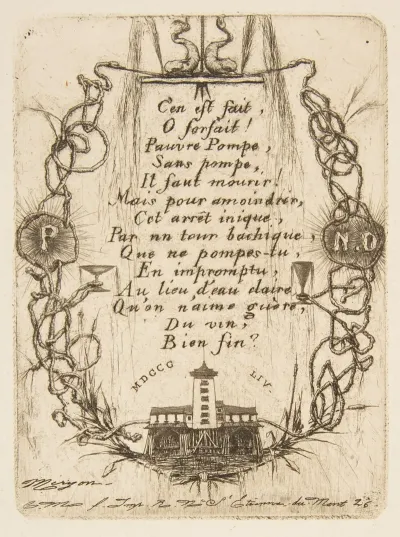 C'en est fait,
O forfait!
Pauvre Pompe,
Sans pompe,
Il faut mourir!
Mais pour amoindrir,
Cet arrêt inique,
Par un tour bachique,
Que ne pompes-tu,
En impromptu,
Au lieu d'eau claire
Qu'on n'aime guère,
Du vin,
Bien fin?
P
N.D
MDCCC LIV.
Meryon
Imp. R. Nve St Etienne du Mont 26